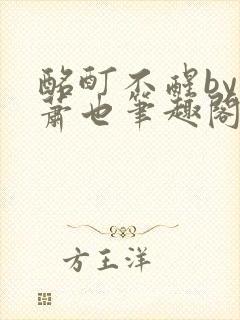 酩酊不醒by
萧也笔趣阁
方王洋